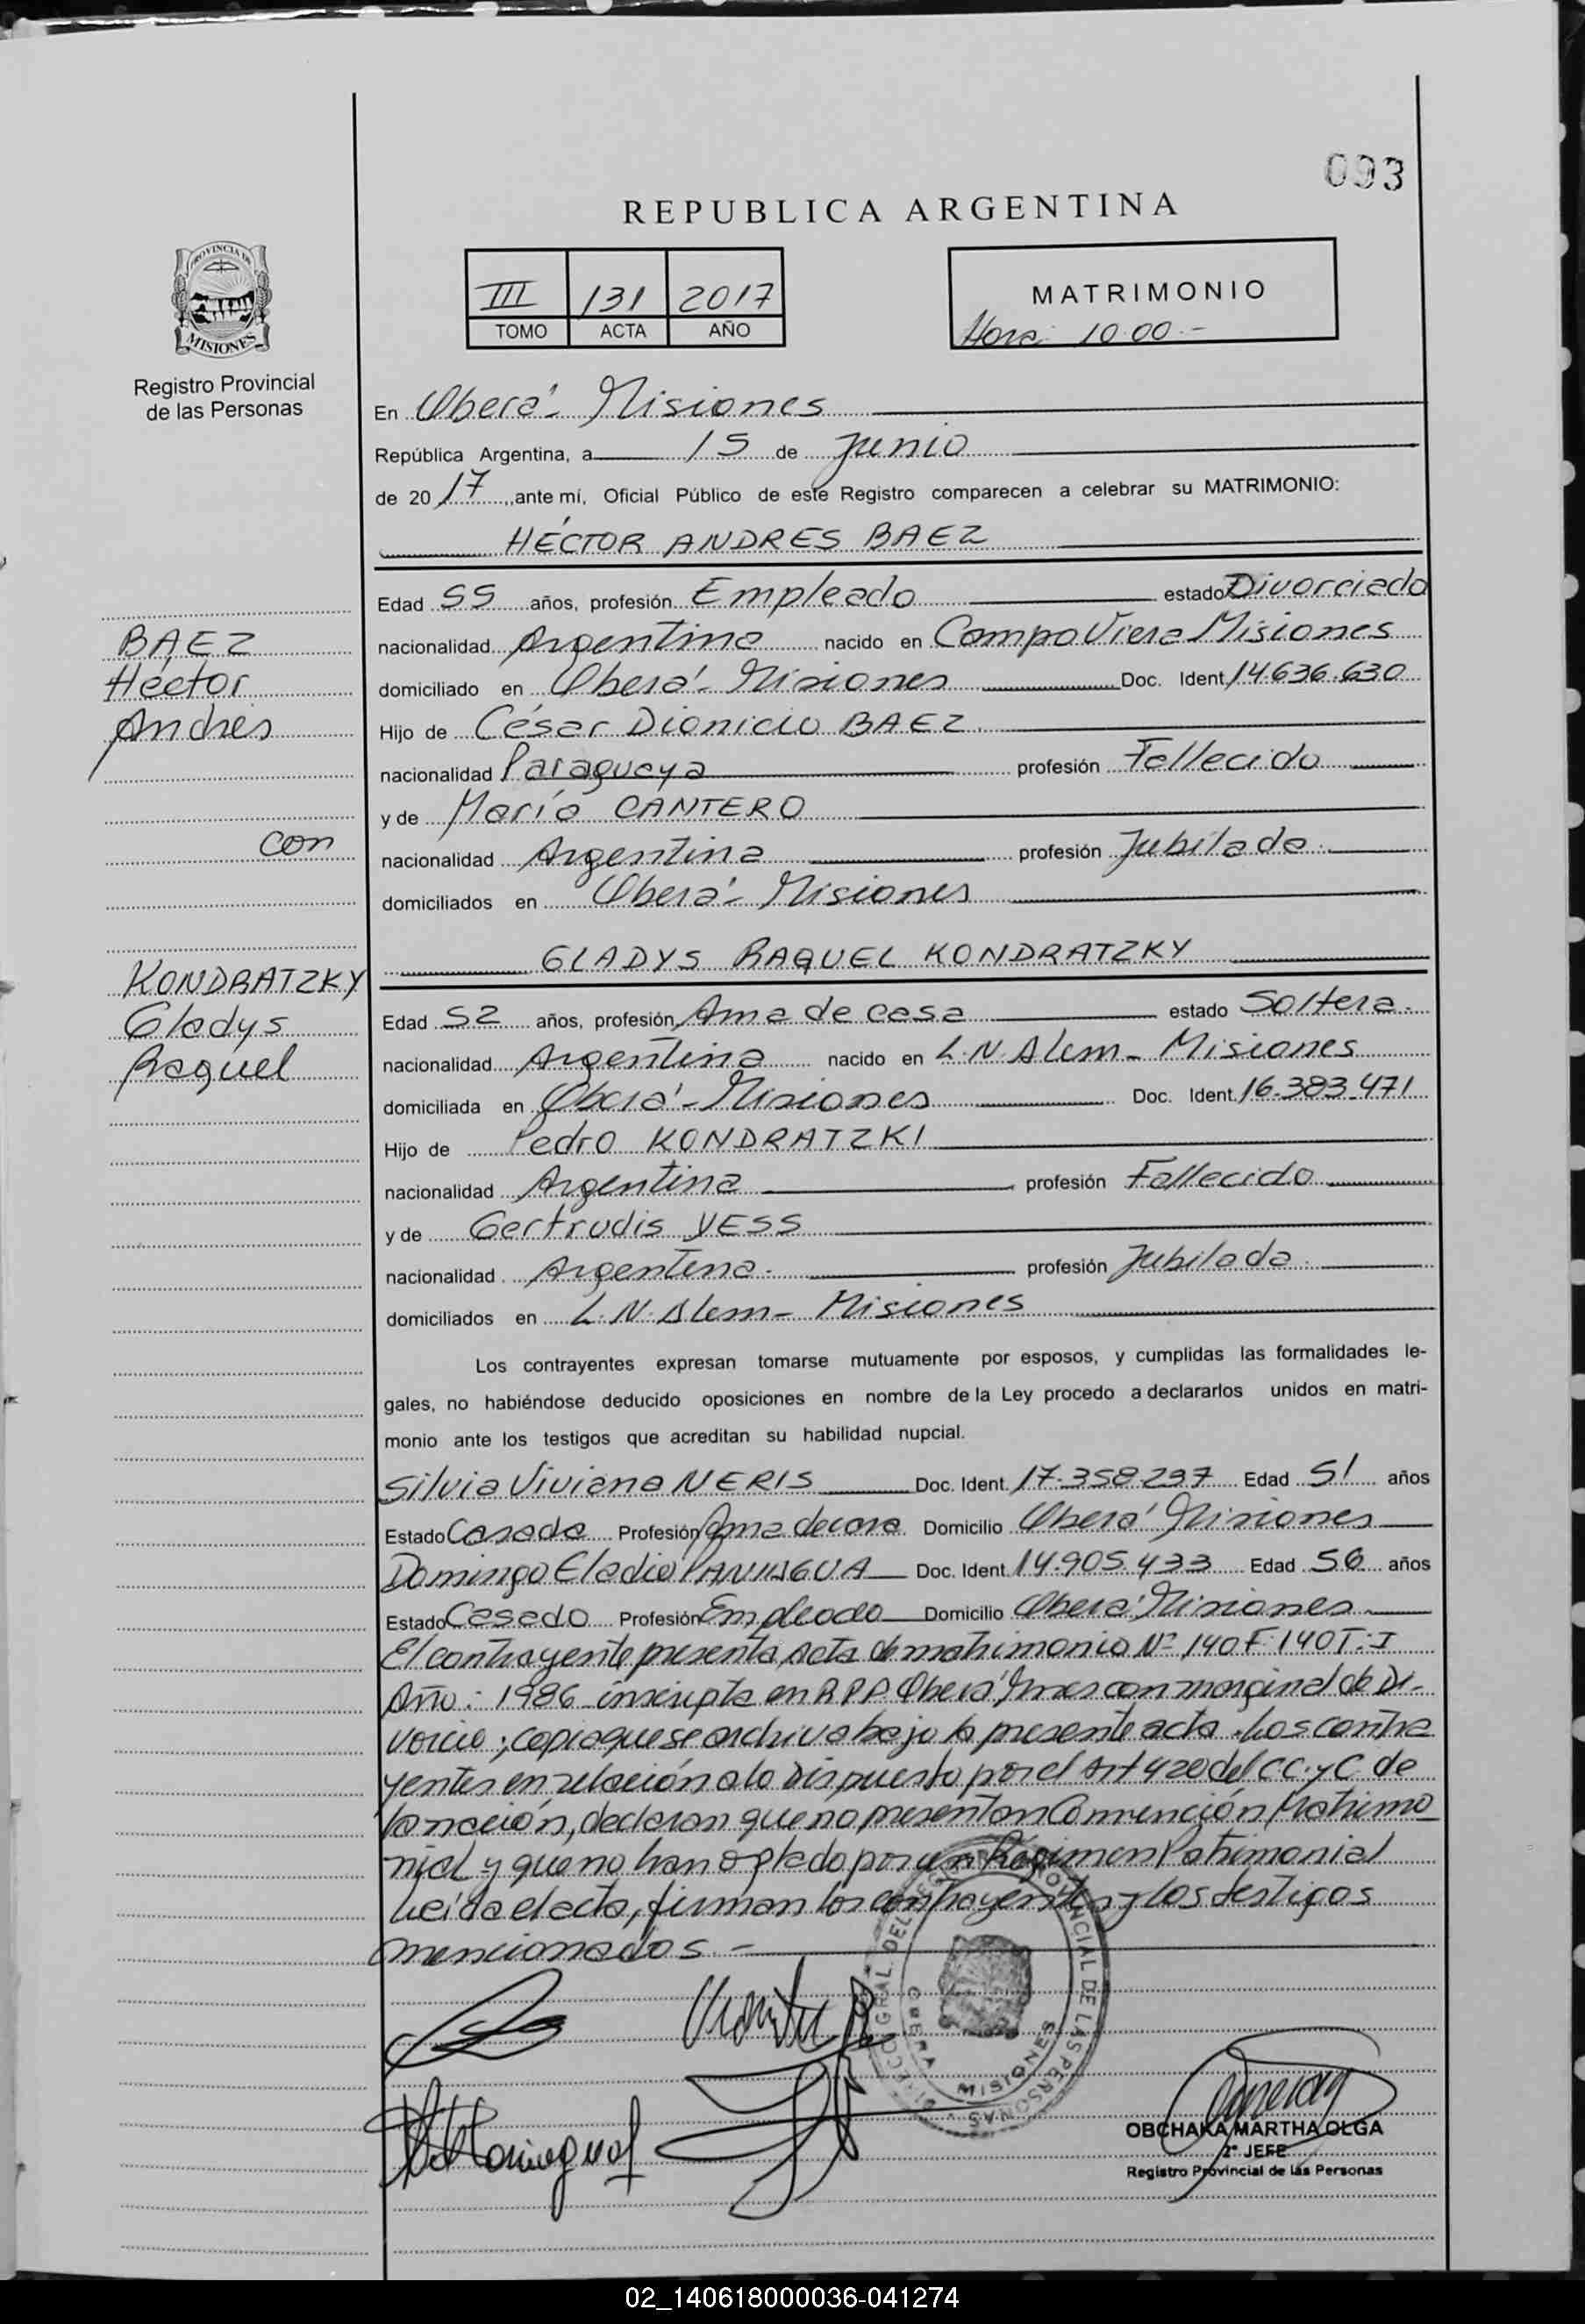 093
REPUBLICA ARGENTINA
III 131 2017
TOMO ACTA AÑO
MATRIMONIO
Hora: 10.00.-
PROVINCIA DE
MISIONES
Registro Provincial
de las Personas
En Oberá - Misiones
República Argentina, a 15 de Junio
de 2017, ante mí, Oficial Público de este Registro comparecen a celebrar su MATRIMONIO:
HÉCTOR ANDRES BAEZ
Edad 55 años, profesión Empleado estado Divorciado
nacionalidad Argentina nacido en Campo Viera Misiones
domiciliado en Oberá - Misiones Doc. Ident. 14.636.630
Hijo de César Dionicio BAEZ.
nacionalidad Paraguaya profesión Fallecido
y de María CANTERO
nacionalidad Argentina profesión Jubilada.
domiciliados en Oberá - Misiones
BAEZ
Héctor
Andrés
con
KONDRATZKY
Gladys
Raquel
GLADYS RAQUEL KONDRATZKY
Edad 52 años, profesión Ama de casa estado Soltera.
nacionalidad Argentina nacido en L.N. Alem - Misiones
domiciliada en Oberá - Misiones Doc. Ident. 16.383.471
Hijo de Pedro KONDRATZKI
nacionalidad Argentina profesión Fallecido
y de Gertrudis YESS
nacionalidad Argentina. profesión Jubilada.
domiciliados en L.N. Alem - Misiones
Los contrayentes expresan tomarse mutuamente por esposos, y cumplidas las formalidades le-
gales, no habiéndose deducido oposiciones en nombre de la Ley procedo a declararlos unidos en matri-
monio ante los testigos que acreditan su habilidad nupcial.
Silvia Viviana NERIS Doc. Ident. 17.358.297 Edad 51 años
Estado Casada Profesión Ama de casa Domicilio Oberá Misiones
Domingo Eladio PANIAGUA Doc. Ident. 14.905.433 Edad 56 años
Estado Casado Profesión Empleado Domicilio Oberá Misiones
El contrayente presenta Acta de matrimonio Nº 140 F: 140 T: I
Año: 1986 inscripta en RPP Oberá Mnes con marginal de Di-
vorcio; copia que se archiva bajo la presente acta. Los contra
yentes en relación a lo Dispuesto por el Art 420 del CC. y C. de
la nación, declaran que no presentan Convención Matrimo
nial y que no han optado por un Régimen Patrimonial
Leída el acta, firman los contrayentes y los testigos
mencionados. -
DIRECC. GRAL. DEL REG. PROVINCIAL DE LAS PERSONAS
OBERA MISIONES
OBCHAKA MARTHA OLGA
2º JEFE
Registro Provincial de las Personas
02_140618000036-041274